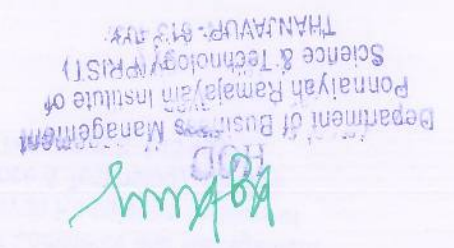 HOD
Department of Business Management
Ponnaiyah Ramajayam Institute of
Science & Technology (PRIST)
THANJAVUR- 613